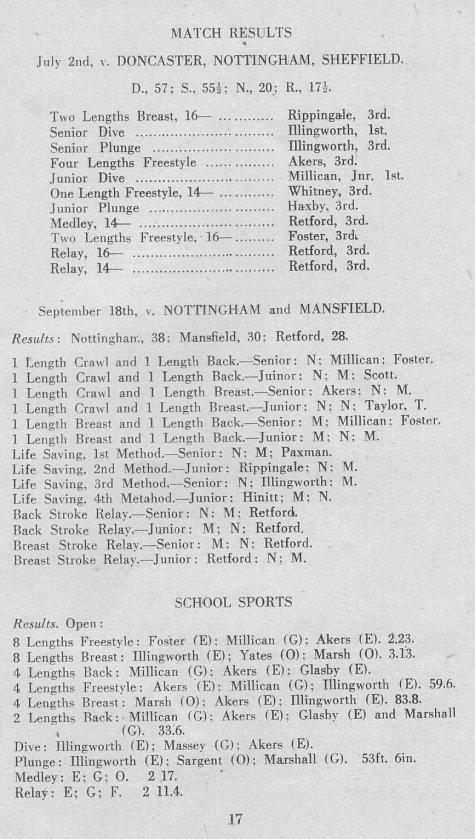 MATCH RESULTS
July 2nd, v. DONCASTER, NOTTINGHAM, SHEFFIELD.
D., 57; S., 55½; N., 20; R., 17½.
Two Lengths Breast, 16— ............ Rippingale, 3rd.
Senior Dive ................................ Illingworth, 1st.
Senior Plunge ............................ Illingworth, 3rd.
Four Lengths Freestyle ............... Akers, 3rd.
Junior Dive ................................ Millican, Jnr. 1st.
One Length Freestyle, 14— ............ Whitney, 3rd.
Junior Plunge ............................ Haxby, 3rd.
Medley, 14— ............................... Retford, 3rd.
Two Lengths Freestyle, 16—......... Foster, 3rd.
Relay, 16— ................................ Retford, 3rd.
Relay, 14— ................................ Retford, 3rd.
September 18th, v. NOTTINGHAM and MANSFIELD.
Results: Nottingham, 38; Mansfield, 30; Retford, 28.
1 Length Crawl and 1 Length Back.—Senior: N; Millican; Foster.
1 Length Crawl and 1 Length Back.—Juinor: N; M; Scott.
1 Length Crawl and 1 Length Breast.—Senior: Akers; N; M.
1 Length Crawl and 1 Length Breast.—Junior: N; N; Taylor, T.
1 Length Breast and 1 Length Back.—Senior: M; Millican; Foster.
1 Length Breast and 1 Length Back.—Junior: M; N; M.
Life Saving, 1st Method.—Senior: N; M; Paxman.
Life Saving, 2nd Method.—Junior: Rippingale; N; M.
Life Saving, 3rd Method.—Senior: N; Illingworth; M.
Life Saving, 4th Metahod.—Junior: Hinitt; M; N.
Back Stroke Relay.—Senior: N: M; Retford.
Back Stroke Relay.—Junior: M; N; Retford.
Breast Stroke Relay.—Senior: M; N; Retford.
Breast Stroke Relay.—Junior: Retford; N; M.
SCHOOL SPORTS
Results. Open:
8 Lengths Freestyle: Foster (E); Millican (G); Akers (E). 2.23.
8 Lengths Breast: Illingworth (E); Yates (O); Marsh (O). 3.13.
4 Lengths Back: Millican (G); Akers (E); Glasby (E).
4 Lengths Freestyle: Akers (E); Millican (G); Illingworth (E). 59.6.
4 Lengths Breast: Marsh (O); Akers (E); Illingworth (E). 83.8.
2 Lengths Back: Millican (G); Akers (E); Glasby (E) and Marshall
(G). 33.6.
Dive: Illingworth (E); Massey (G); Akers (E).
Plunge: Illingworth (E); Sargent (O); Marshall (G). 53ft. 6in.
Medley: E; G; O. 2 17.
Relay: E; G; F. 2 11.4.
17